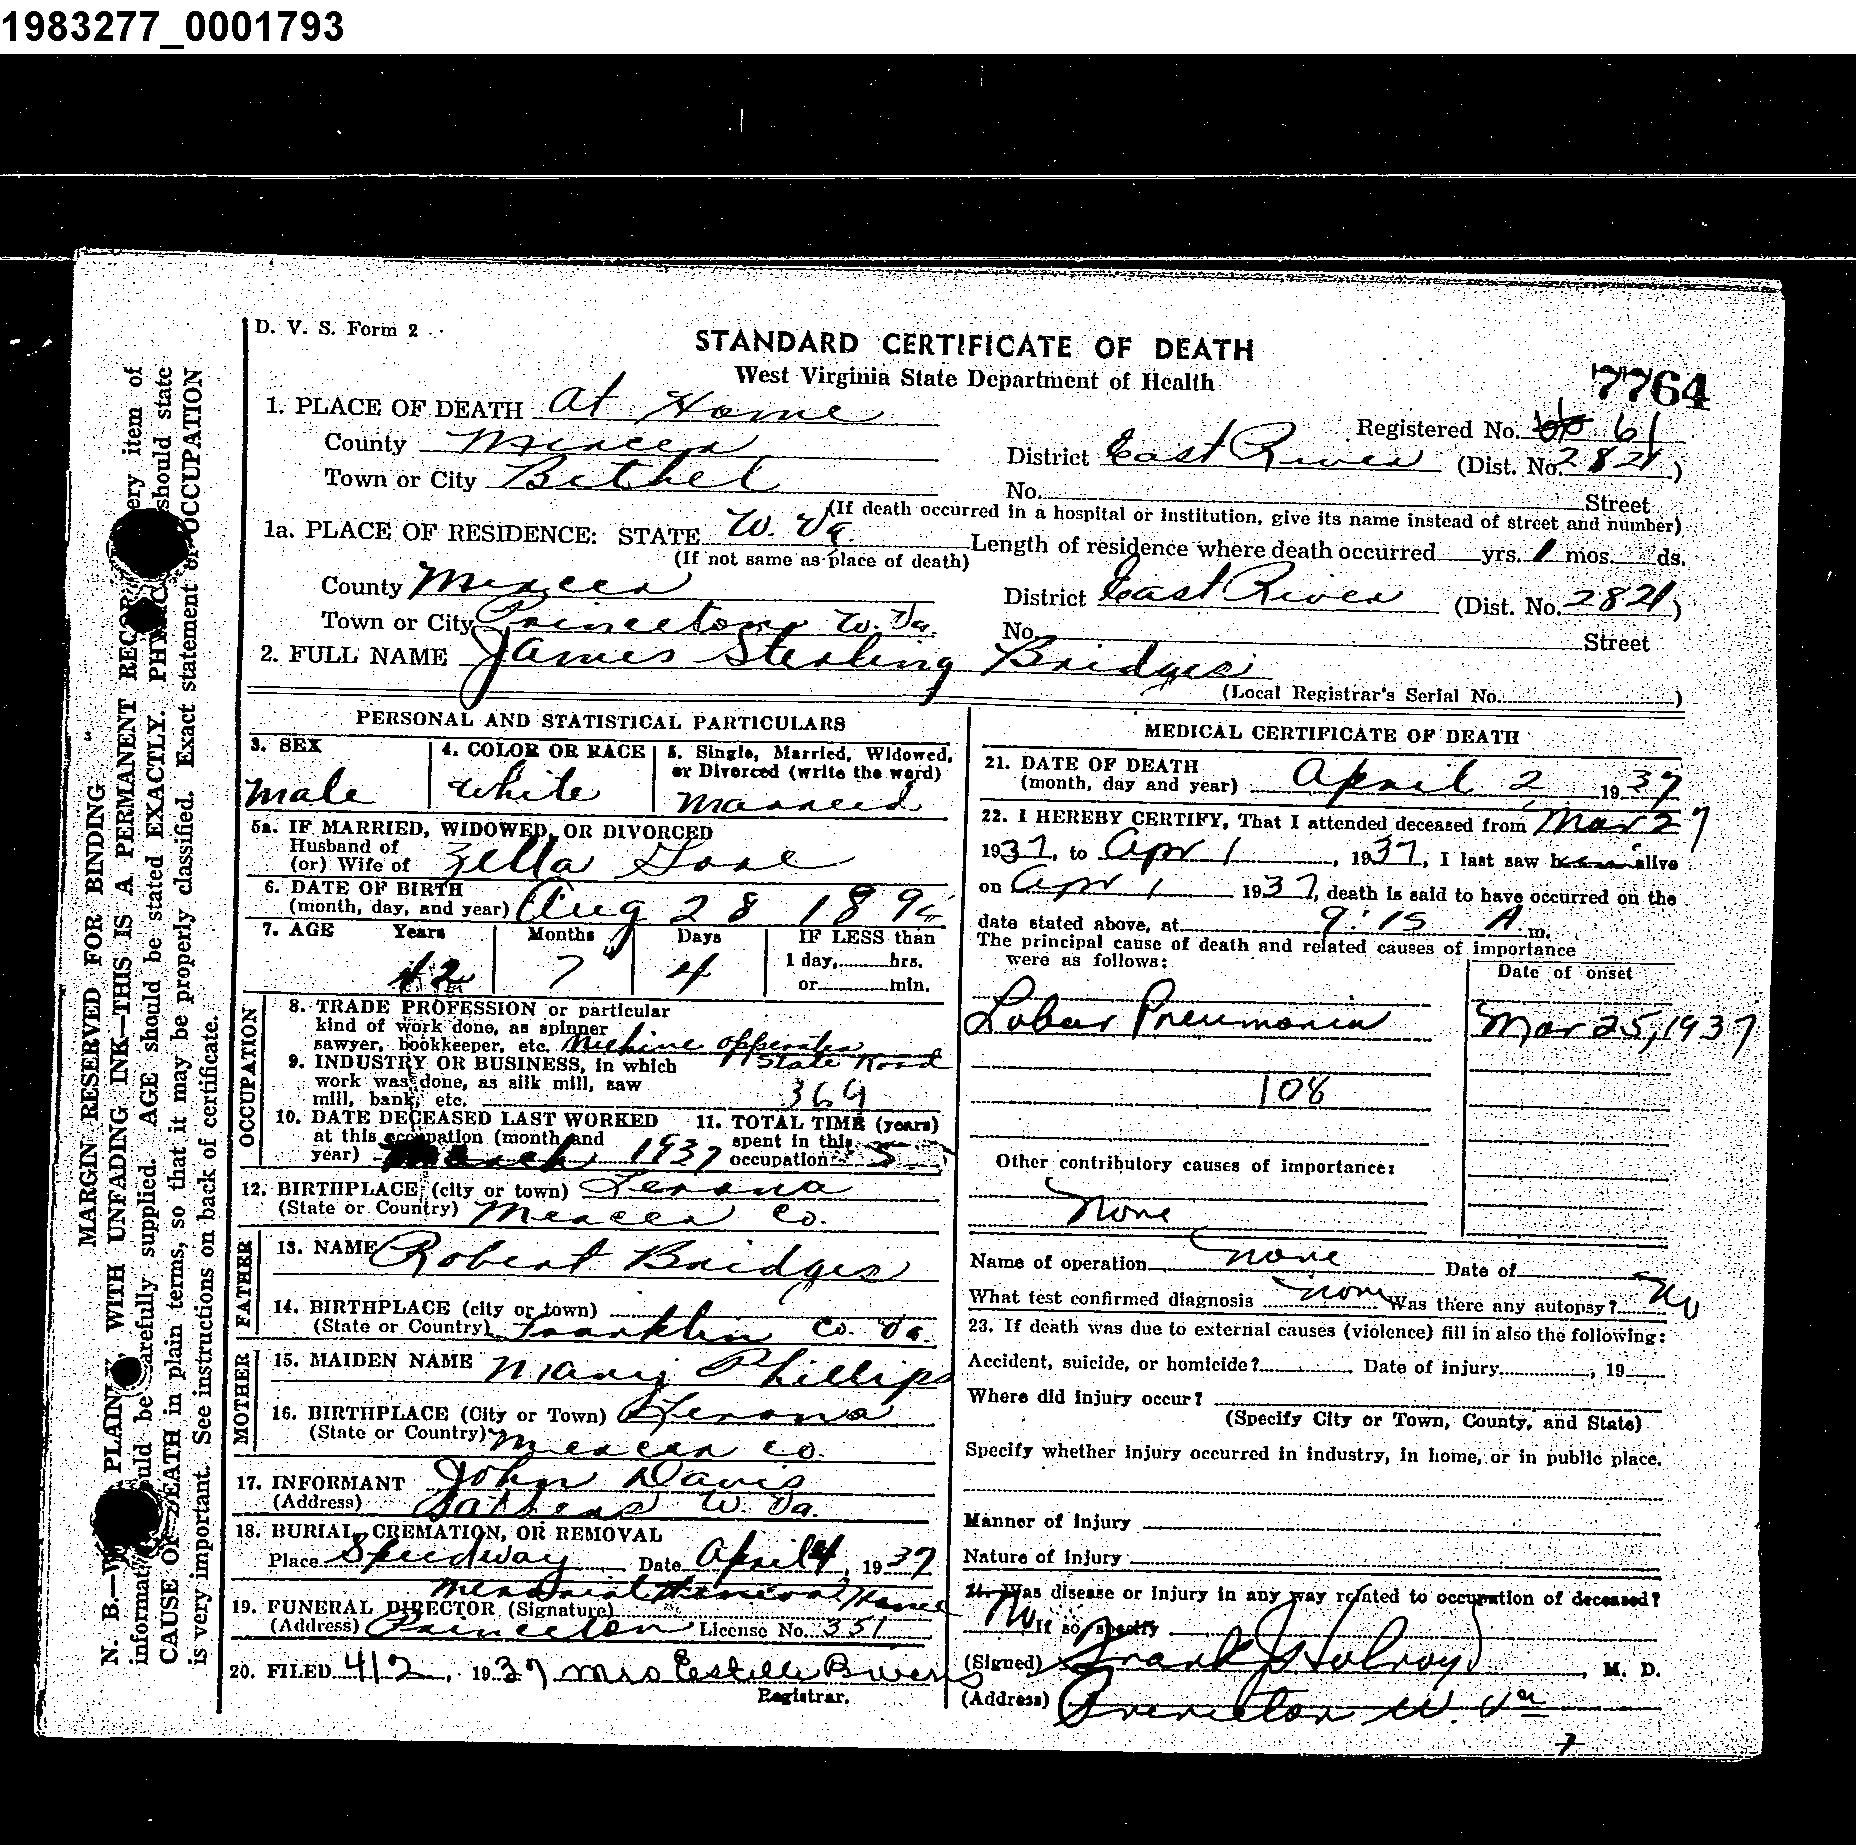 1983277_0001793
D. V. S. Form 2
STANDARD CERTIFICATE OF DEATH
West Virginia State Department of Health
7764
1. PLACE OF DEATH At Home
Registered No. 61
County Mercer
District East River (Dist. No. 2821)
Town or City Bethel
No. Street
(If death occurred in a hospital or institution, give its name instead of street and number)
1a. PLACE OF RESIDENCE: STATE W. Va.
(If not same as place of death)
Length of residence where death occurred yrs. 1 mos. ds.
County Mercer
District East River (Dist. No. 2821)
Town or City Princeton W. Va.
No. Street
2. FULL NAME James Sterling Bridges
(Local Registrar's Serial No. )
PERSONAL AND STATISTICAL PARTICULARS
3. SEX
male
4. COLOR OR RACE
white
5. Single, Married, Widowed,
or Divorced (write the word)
Married
5a. IF MARRIED, WIDOWED, OR DIVORCED
Husband of
(or) Wife of Zella Gore
6. DATE OF BIRTH
(month, day, and year) Aug 28 189
7. AGE Years Months Days
42 7 4
IF LESS than
1 day, hrs.
or min.
OCCUPATION
8. TRADE PROFESSION or particular
kind of work done, as spinner
sawyer, bookkeeper, etc. Michine opperater
9. INDUSTRY OR BUSINESS, in which State Road
work was done, as silk mill, saw
mill, bank, etc. 369
10. DATE DECEASED LAST WORKED
at this occupation (month and
year) March 1937
11. TOTAL TIME (years)
spent in this
occupation 5
12. BIRTHPLACE (city or town) Lerona
(State or Country) Mercer Co.
FATHER
13. NAME Robert Bridges
14. BIRTHPLACE (city or town)
(State or Country) Franklin Co. Va.
MOTHER
15. MAIDEN NAME Mary Phillips
16. BIRTHPLACE (City or Town) Lerona
(State or Country) Mercer Co.
17. INFORMANT John Davis
(Address) W. Va.
18. BURIAL, CREMATION, OR REMOVAL
Place Speedway Date April 4, 1937
Memorial Funeral Home
19. FUNERAL DIRECTOR (Signature)
(Address) Princeton License No. 351
20. FILED 4/2, 1937 Mrs Estelle Bivens
Registrar.
MEDICAL CERTIFICATE OF DEATH
21. DATE OF DEATH
(month, day and year) April 2 1937
22. I HEREBY CERTIFY, That I attended deceased from Mar 27
1937, to Apr 1, 1937, I last saw him alive
on Apr 1 1937, death is said to have occurred on the
date stated above, at 9:15 A m.
The principal cause of death and related causes of importance
were as follows:
Date of onset
Lobar Pneumonia Mar 25, 1937
108
Other contributory causes of importance:
None
Name of operation none Date of
What test confirmed diagnosis none Was there any autopsy? No
23. If death was due to external causes (violence) fill in also the following:
Accident, suicide, or homicide? Date of injury , 19
Where did injury occur?
(Specify City or Town, County, and State)
Specify whether injury occurred in industry, in home, or in public place.
Manner of injury
Nature of injury
24. Was disease or injury in any way related to occupation of deceased?
No If so, specify
(Signed) Frank J Holroyd, M. D.
(Address) Princeton W. Va
7
MARGIN RESERVED FOR BINDING
CAUSE OF DEATH in plain terms, so that it may be properly classified. Exact statement of OCCUPATION
is very important. See instructions on back of certificate.